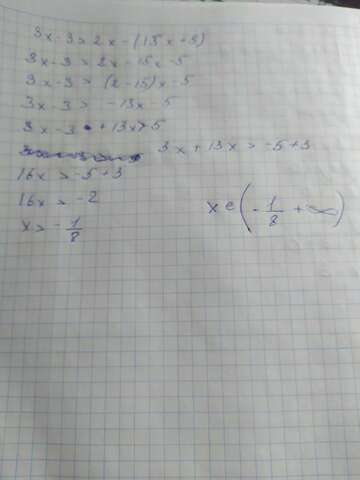 3x-3>2x-(15x+5)
3x-3>2x-15x-5
3x-3>(2-15)x-5
3x-3>-13x-5
3x-3+13x>5
3x+13x>-5+3
16x>-5+3
16x>-2
x>-1/8
x∈(-1/8 +∞)